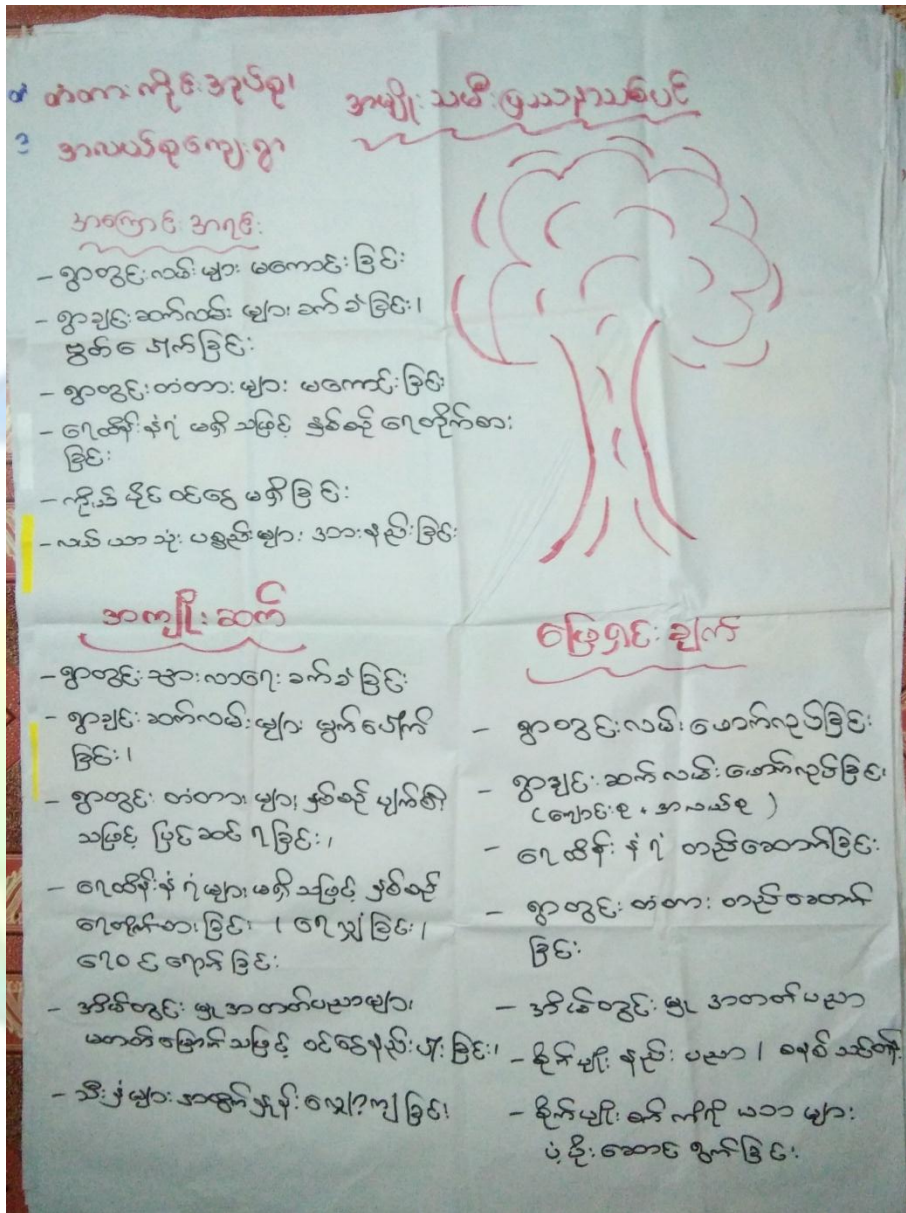 တံတားကိုင်းအုပ်စု၊
အလယ်စုကျေးရွာ
အမျိုးသမီးပြဿနာသစ်ပင်
အကြောင်းအရင်း
- ရွာတွင်းလမ်းများ မကောင်းခြင်း
- ရွာချင်းဆက်လမ်းများ ခက်ခဲခြင်း၊
ဗွက်ပေါက်ခြင်း
- ရွာတွင်းတံတားများ မကောင်းခြင်း
- ရေထိန်းနံရံ မရှိသဖြင့် နှစ်စဉ် ရေတိုက်စား
ခြင်း
- ကိုယ်ပိုင်ဝင်ငွေ မရှိခြင်း
- လယ်ယာသုံး ပစ္စည်းများ အားနည်းခြင်း
အကျိုးဆက်
- ရွာတွင်းသွားလာရေး ခက်ခဲခြင်း
- ရွာချင်းဆက်လမ်းများ ဗွက်ပေါက်
ခြင်း၊
- ရွာတွင်း တံတားများ နှစ်စဉ် ပျက်စီး
သဖြင့် ပြင်ဆင်ရခြင်း၊
- ရေထိန်းနံရံများ မရှိသဖြင့် နှစ်စဉ်
ရေတိုက်စားခြင်း ၊ ရေလျှံခြင်း၊
ရေဝင်ရောက်ခြင်း
- အိမ်တွင်းမှု အတတ်ပညာများ
မတတ်မြောက်သဖြင့် ဝင်ငွေနည်းပါးခြင်း၊
- သီးနှံများ အထွက်နှုန်း လျှော့ကျခြင်း၊
ဖြေရှင်းချက်
- ရွာတွင်းလမ်း ဖောက်လုပ်ခြင်း
- ရွာချင်းဆက်လမ်း ဖောက်လုပ်ခြင်း
(ကျောင်းစု + အလယ်စု)
- ရေထိန်းနံရံ တည်ဆောက်ခြင်း
- ရွာတွင်း တံတား တည်ဆောက်
ခြင်း
- အိမ်တွင်းမှု အတတ်ပညာ
- စိုက်ပျိုးနည်းပညာ ၊ စနစ် သင်တန်း
- စိုက်ပျိုးစက်ကိရိယာများ
ပံ့ပိုးဆောင်ရွက်ခြင်း